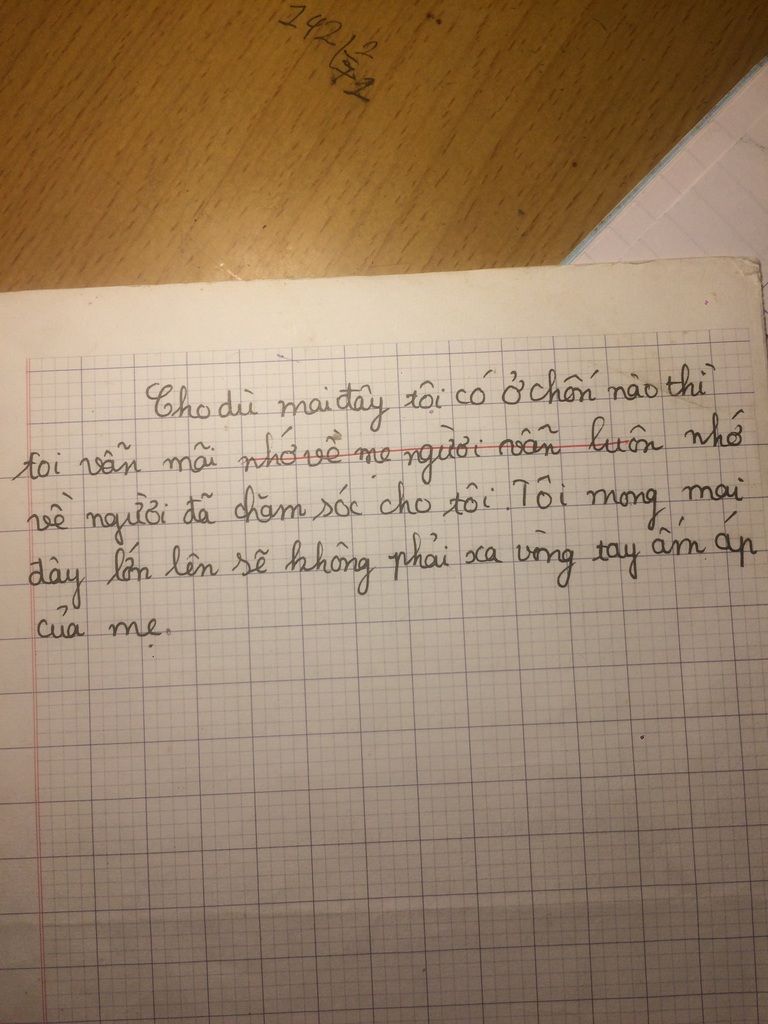 142 2
Cho dù mai đây tôi có ở chốn nào thì
tôi vẫn mãi nhớ về mẹ người vẫn luôn nhớ
về người đã chăm sóc cho tôi. Tôi mong mai
đây lớn lên sẽ không phải xa vòng tay ấm áp
của mẹ.